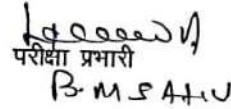 परीक्षा प्रभारी
B. M SAHU